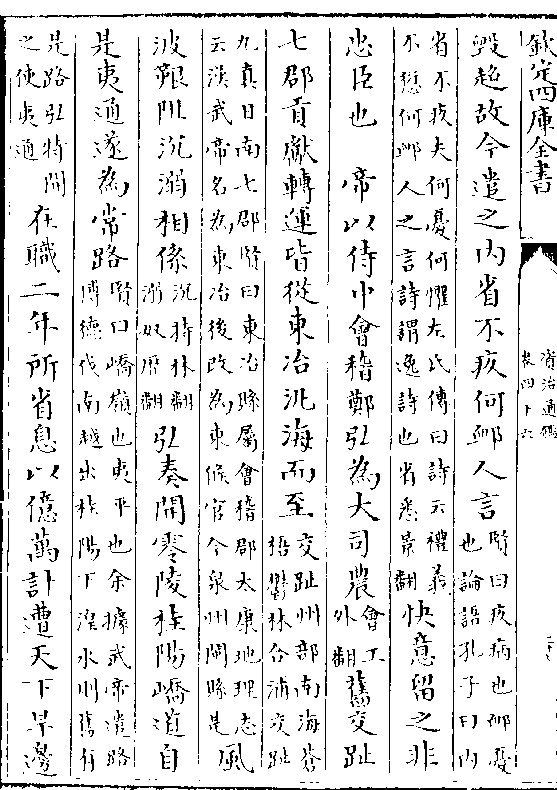 欽定四庫全書
資治通鑑
卷四十六
毀超故今遣之内省不疚何䘏人言賢曰疚病也䘏憂也論語孔子曰内
省不疚夫何憂何懼左氏傳曰詩云禮義不愆何䘏人之言詩謂逸詩也省悉景翻快意留之非
忠臣也　帝以侍中會稽鄭弘為大司農會工外翻舊交趾
七郡貢獻轉運皆從東冶汎海而至交趾州部南海蒼梧鬱林合浦交趾
九真日南七郡賢曰東冶縣屬會稽郡太康地理志云漢武帝名為東冶後改為東候官今泉州閩縣是風
波艱阻沉溺相係沉持林翻溺奴歴翻弘奏開零陵桂陽嶠道自
是夷通遂為常路賢曰嶠嶺也夷平也余據武帝遣路博德伐南越出桂陽下湟水則舊有
是路弘特開之使夷通在職二年所省息以億萬計遭天下旱邊